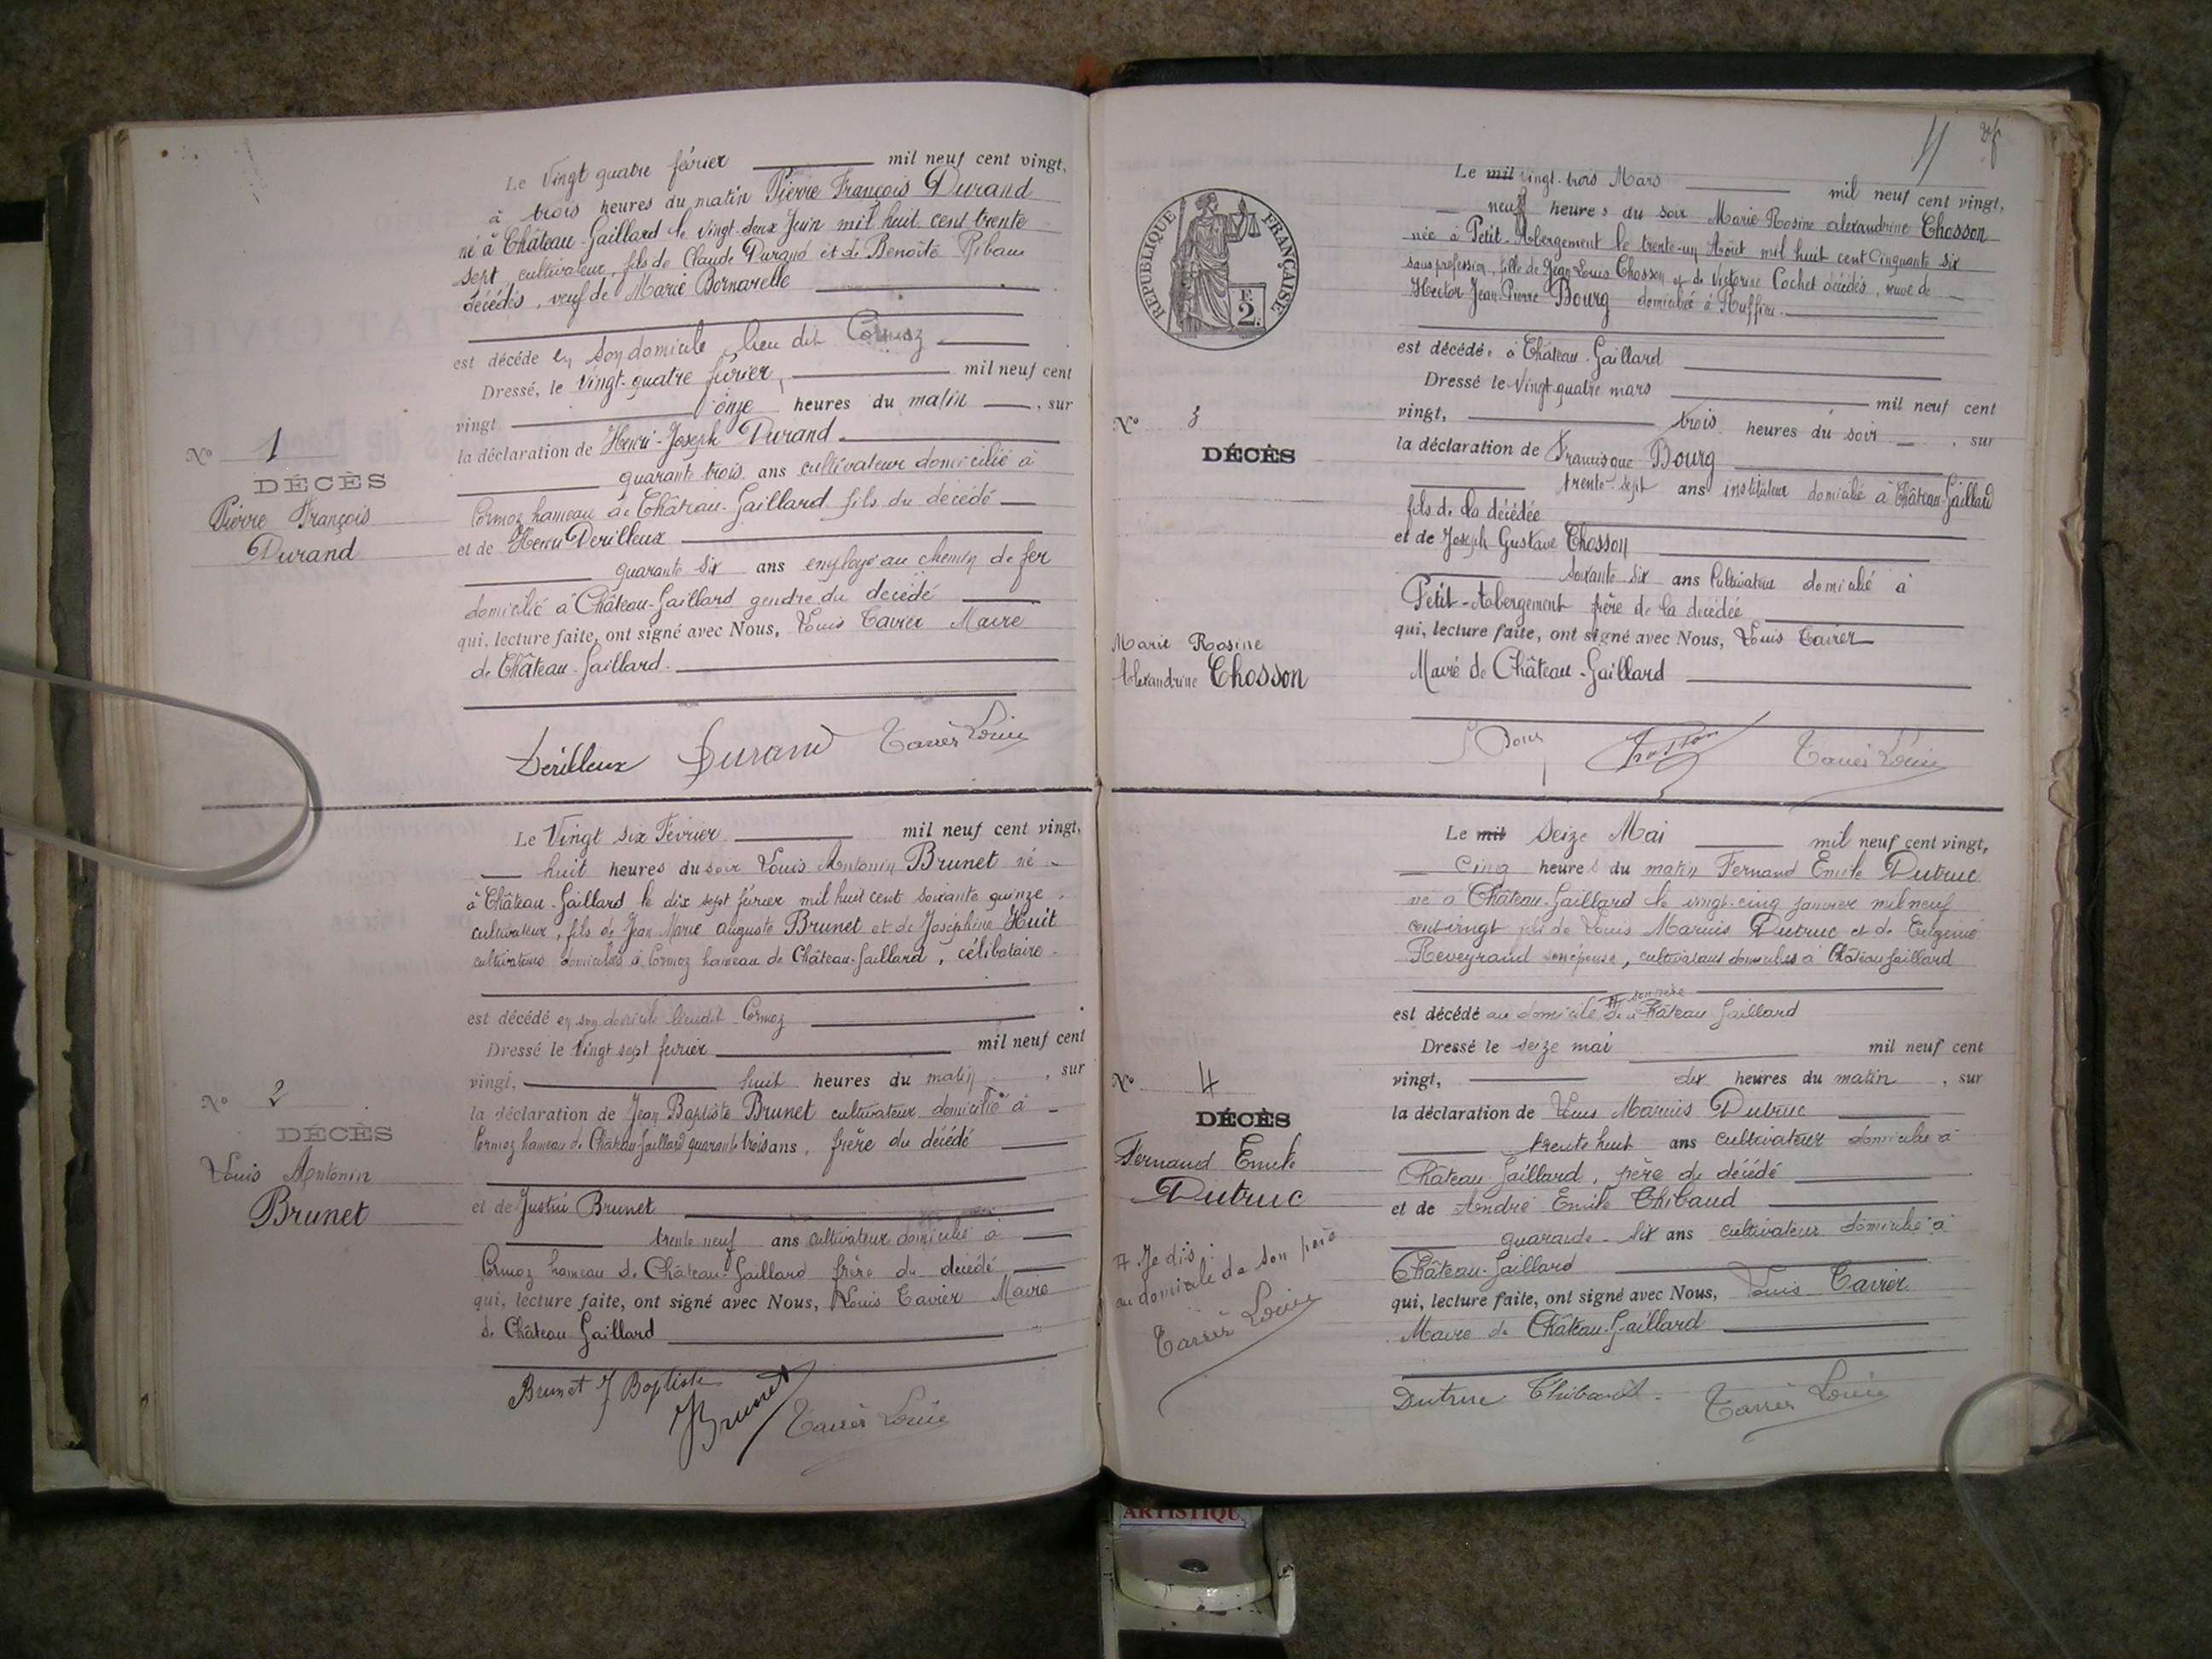 Le Vingt quatre février mil neuf cent vingt,
à trois heures du matin Pierre François Durand
né à Château-Gaillard le vingt-deux Juin mil huit cent trente
sept, cultivateur, fils de Claude Durand et de Benoîte
décédés, veuf de Marie Bornarelle
est décédé en son domicile lieu dit Cormoz
Dressé, le Vingt-quatre février, mil neuf cent
vingt onze heures du matin, sur
la déclaration de Henri-Joseph Durand
quarante trois ans cultivateur domicilié à
Cormoz hameau de Château-Gaillard fils du décédé
et de Henri Derilleux
quarante six ans employé au chemin de fer
domicilié à Château-Gaillard gendre du décédé
qui, lecture faite, ont signé avec Nous, Louis Tavier Maire
de Château-Gaillard.
Derilleux Durand Tavier Louis
No 1
DÉCÈS
Pierre François
Durand
Le Vingt six Février mil neuf cent vingt,
huit heures du soir Louis Antonin Brunet né
à Château-Gaillard le dix sept février mil huit cent soixante quinze,
cultivateur, fils de Jean Marie Auguste Brunet et de Joséphine Huit
cultivateurs domiciliés à Cormoz hameau de Château-Gaillard, célibataire
est décédé en son domicile lieudit Cormoz
Dressé le Vingt sept février mil neuf cent
vingt, huit heures du matin, sur
la déclaration de Jean Baptiste Brunet cultivateur domicilié à
Cormoz hameau de Château-Gaillard quarante trois ans, frère du décédé
et de Justin Brunet
trente neuf ans cultivateur domicilié à
Cormoz hameau de Château-Gaillard frère du décédé
qui, lecture faite, ont signé avec Nous, Louis Tavier Maire
de Château Gaillard
Brunet J Baptiste JBrunet Tavier Louis
No 2
DÉCÈS
Louis Antonin
Brunet
RÉPUBLIQUE FRANÇAISE
F.
2.
Le mil vingt-trois Mars mil neuf cent vingt,
neuf heures du soir Marie Rosine Alexandrine Chosson
née à Petit-Abergement le trente-un Août mil huit cent Cinquante six
sans profession, fille de Jean Louis Chosson et de Victorine Cochet décédés, veuve de
Hector Jean Pierre Bourg domiciliée à Ruffieu.
est décédée à Château-Gaillard
Dressé le Vingt-quatre mars mil neuf cent
vingt, trois heures du soir, sur
la déclaration de Francisque Bourg
trente-sept ans instituteur domicilié à Château-Gaillard
fils de la décédée
et de Joseph Gustave Chosson
soixante six ans Cultivateur domicilié à
Petit-Abergement frère de la décédée
qui, lecture faite, ont signé avec Nous, Louis Tavier
Maire de Château-Gaillard
Chosson Tavier Louis
No 3
DÉCÈS
Marie Rosine
Alexandrine Chosson
Le mil Seize Mai mil neuf cent vingt,
Cinq heures du matin Fernand Emile Dutruc
né à Château-Gaillard le vingt-cinq janvier mil neuf
cent vingt fils de Louis Marius Dutruc et de Eugénie
Reveyrand son épouse, cultivateurs domiciliés à Château Gaillard
son père
est décédé au domicile de à Château Gaillard
Dressé le seize mai mil neuf cent
vingt, dix heures du matin, sur
la déclaration de Louis Marius Dutruc
trente huit ans cultivateur domicilié à
Château-Gaillard, père du décédé
et de André Emile Thibaud
quarante-six ans cultivateur domicilié à
Château-Gaillard
qui, lecture faite, ont signé avec Nous, Louis Tavier
Maire de Château-Gaillard
Dutruc Thibaud Tavier Louis
No 4
DÉCÈS
Fernand Emile
Dutruc
Je dis :
au domicile de son père
Tavier Louis
ARTISTIQU